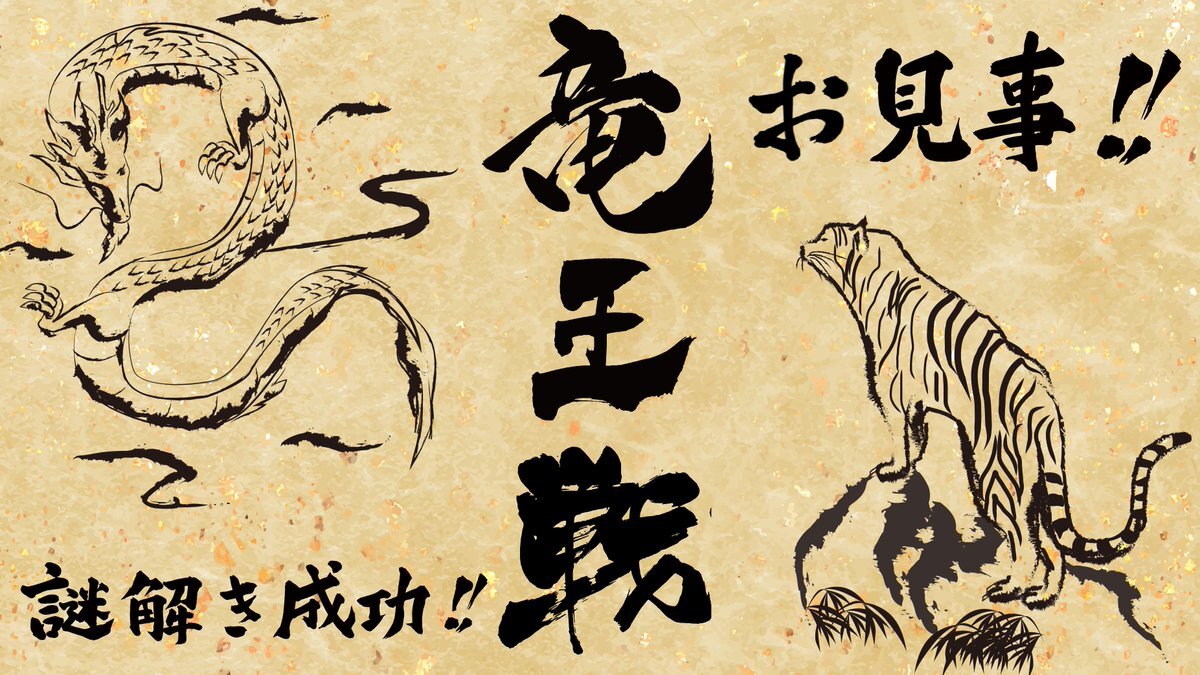 お見事!!
竜王戦
謎解き成功!!